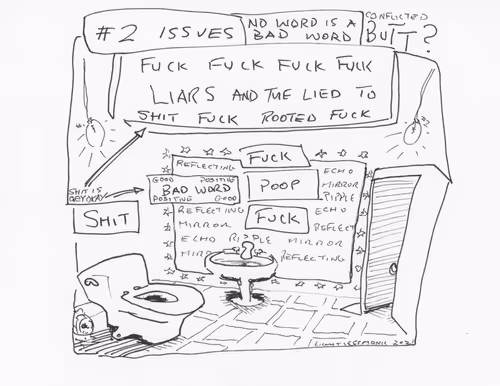 #2 ISSUES
NO WORD IS A
BAD WORD
CONFLICTED
BUTT?
FUCK FUCK FUCK FUCK
LIARS AND THE LIED TO
SHIT FUCK ROOTED FUCK
SHIT IS
SHIT
REFLECTING
FUCK
GOOD POSITIVE
BAD WORD
POSITIVE GOOD
POOP
ECHO
MIRROR
RIPPLE
REFLECTING
MIRROR
FUCK
ECHO
REFLECT
ECHO RIPPLE MIRROR
MIRR
REFLECTING